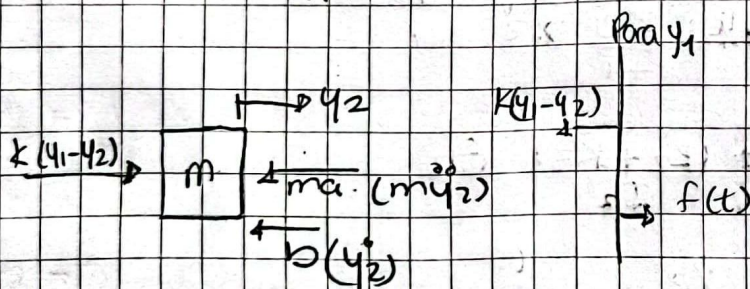 Para y₁
y₂
K(y₁-y₂)
K(y₁-y₂)
m
ma. (mÿ₂)
f(t)
b(ẏ₂)